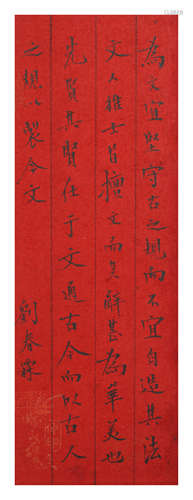 為文宜堅守古之規而不宜自造其法
文人推士皆擅文而其辭甚為華美也
先賢其賢任于文通古今而以古人
之規以製今文
劉春霖